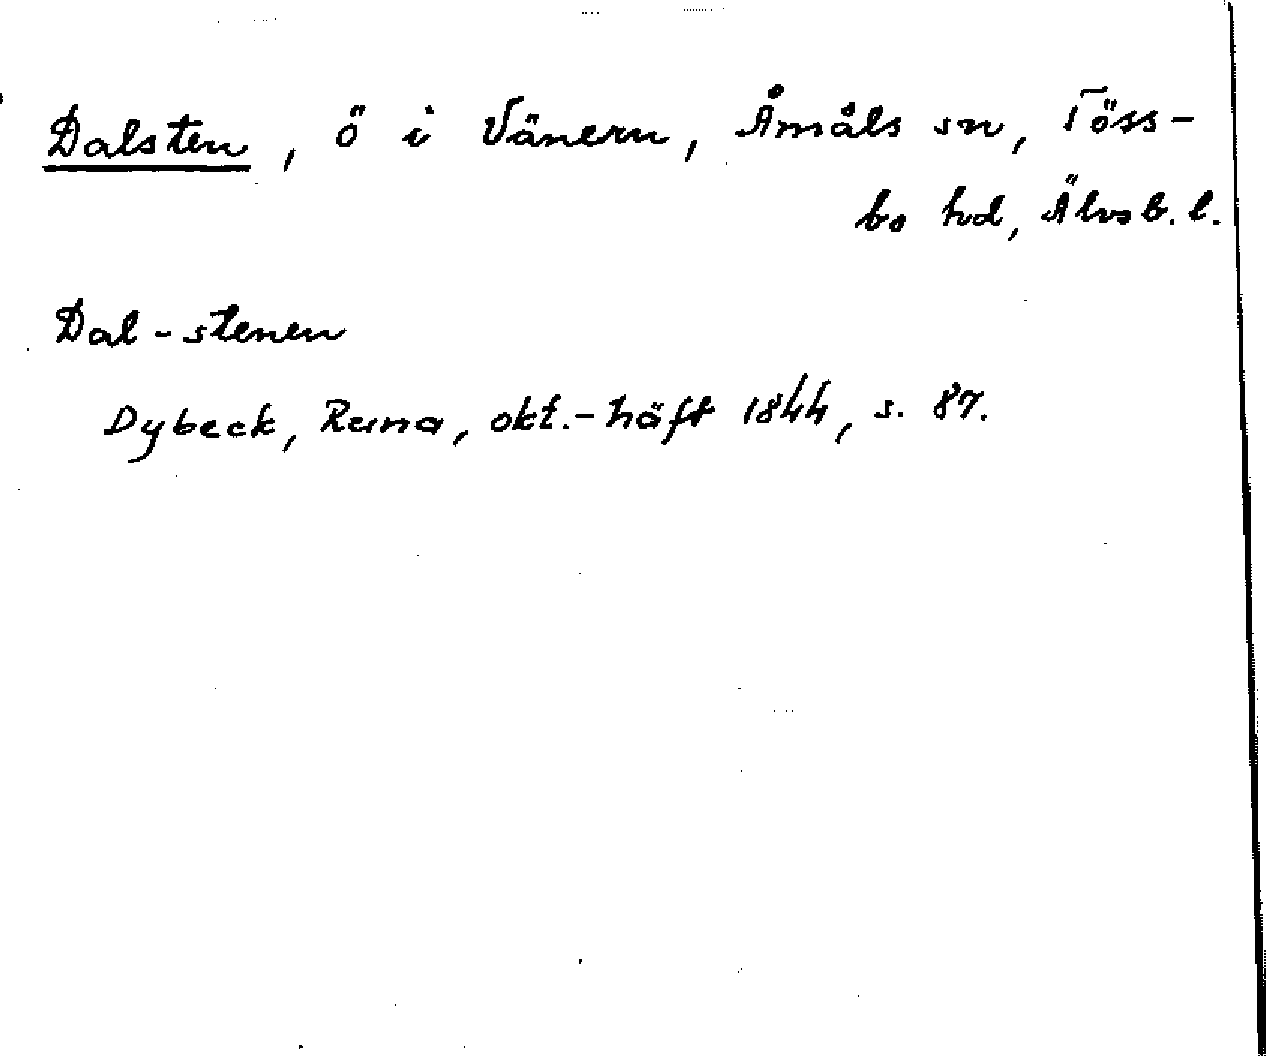 Dalsten, ö i Vänern, Åmåls sn, Töss-
bo hd, Älvsb. l.
Dal-stenen
Dybeck, Runa, okt.-häft 1844, s. 87.